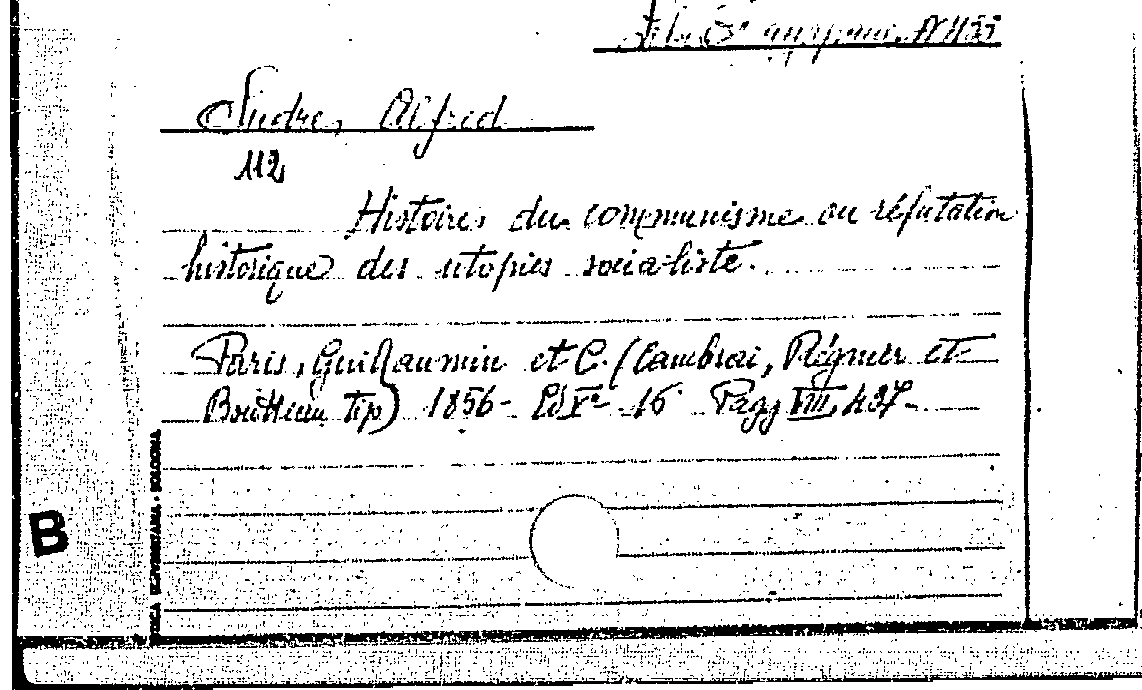 Sudre, Alfred
112
Histoire du communisme ou réfutation
historique des utopies socialiste.
Paris, Guillaumin et C. (Cambrai, Régnier et
tip) 1856- 16 Pagg VIII, 437-
B
BOLOGNA